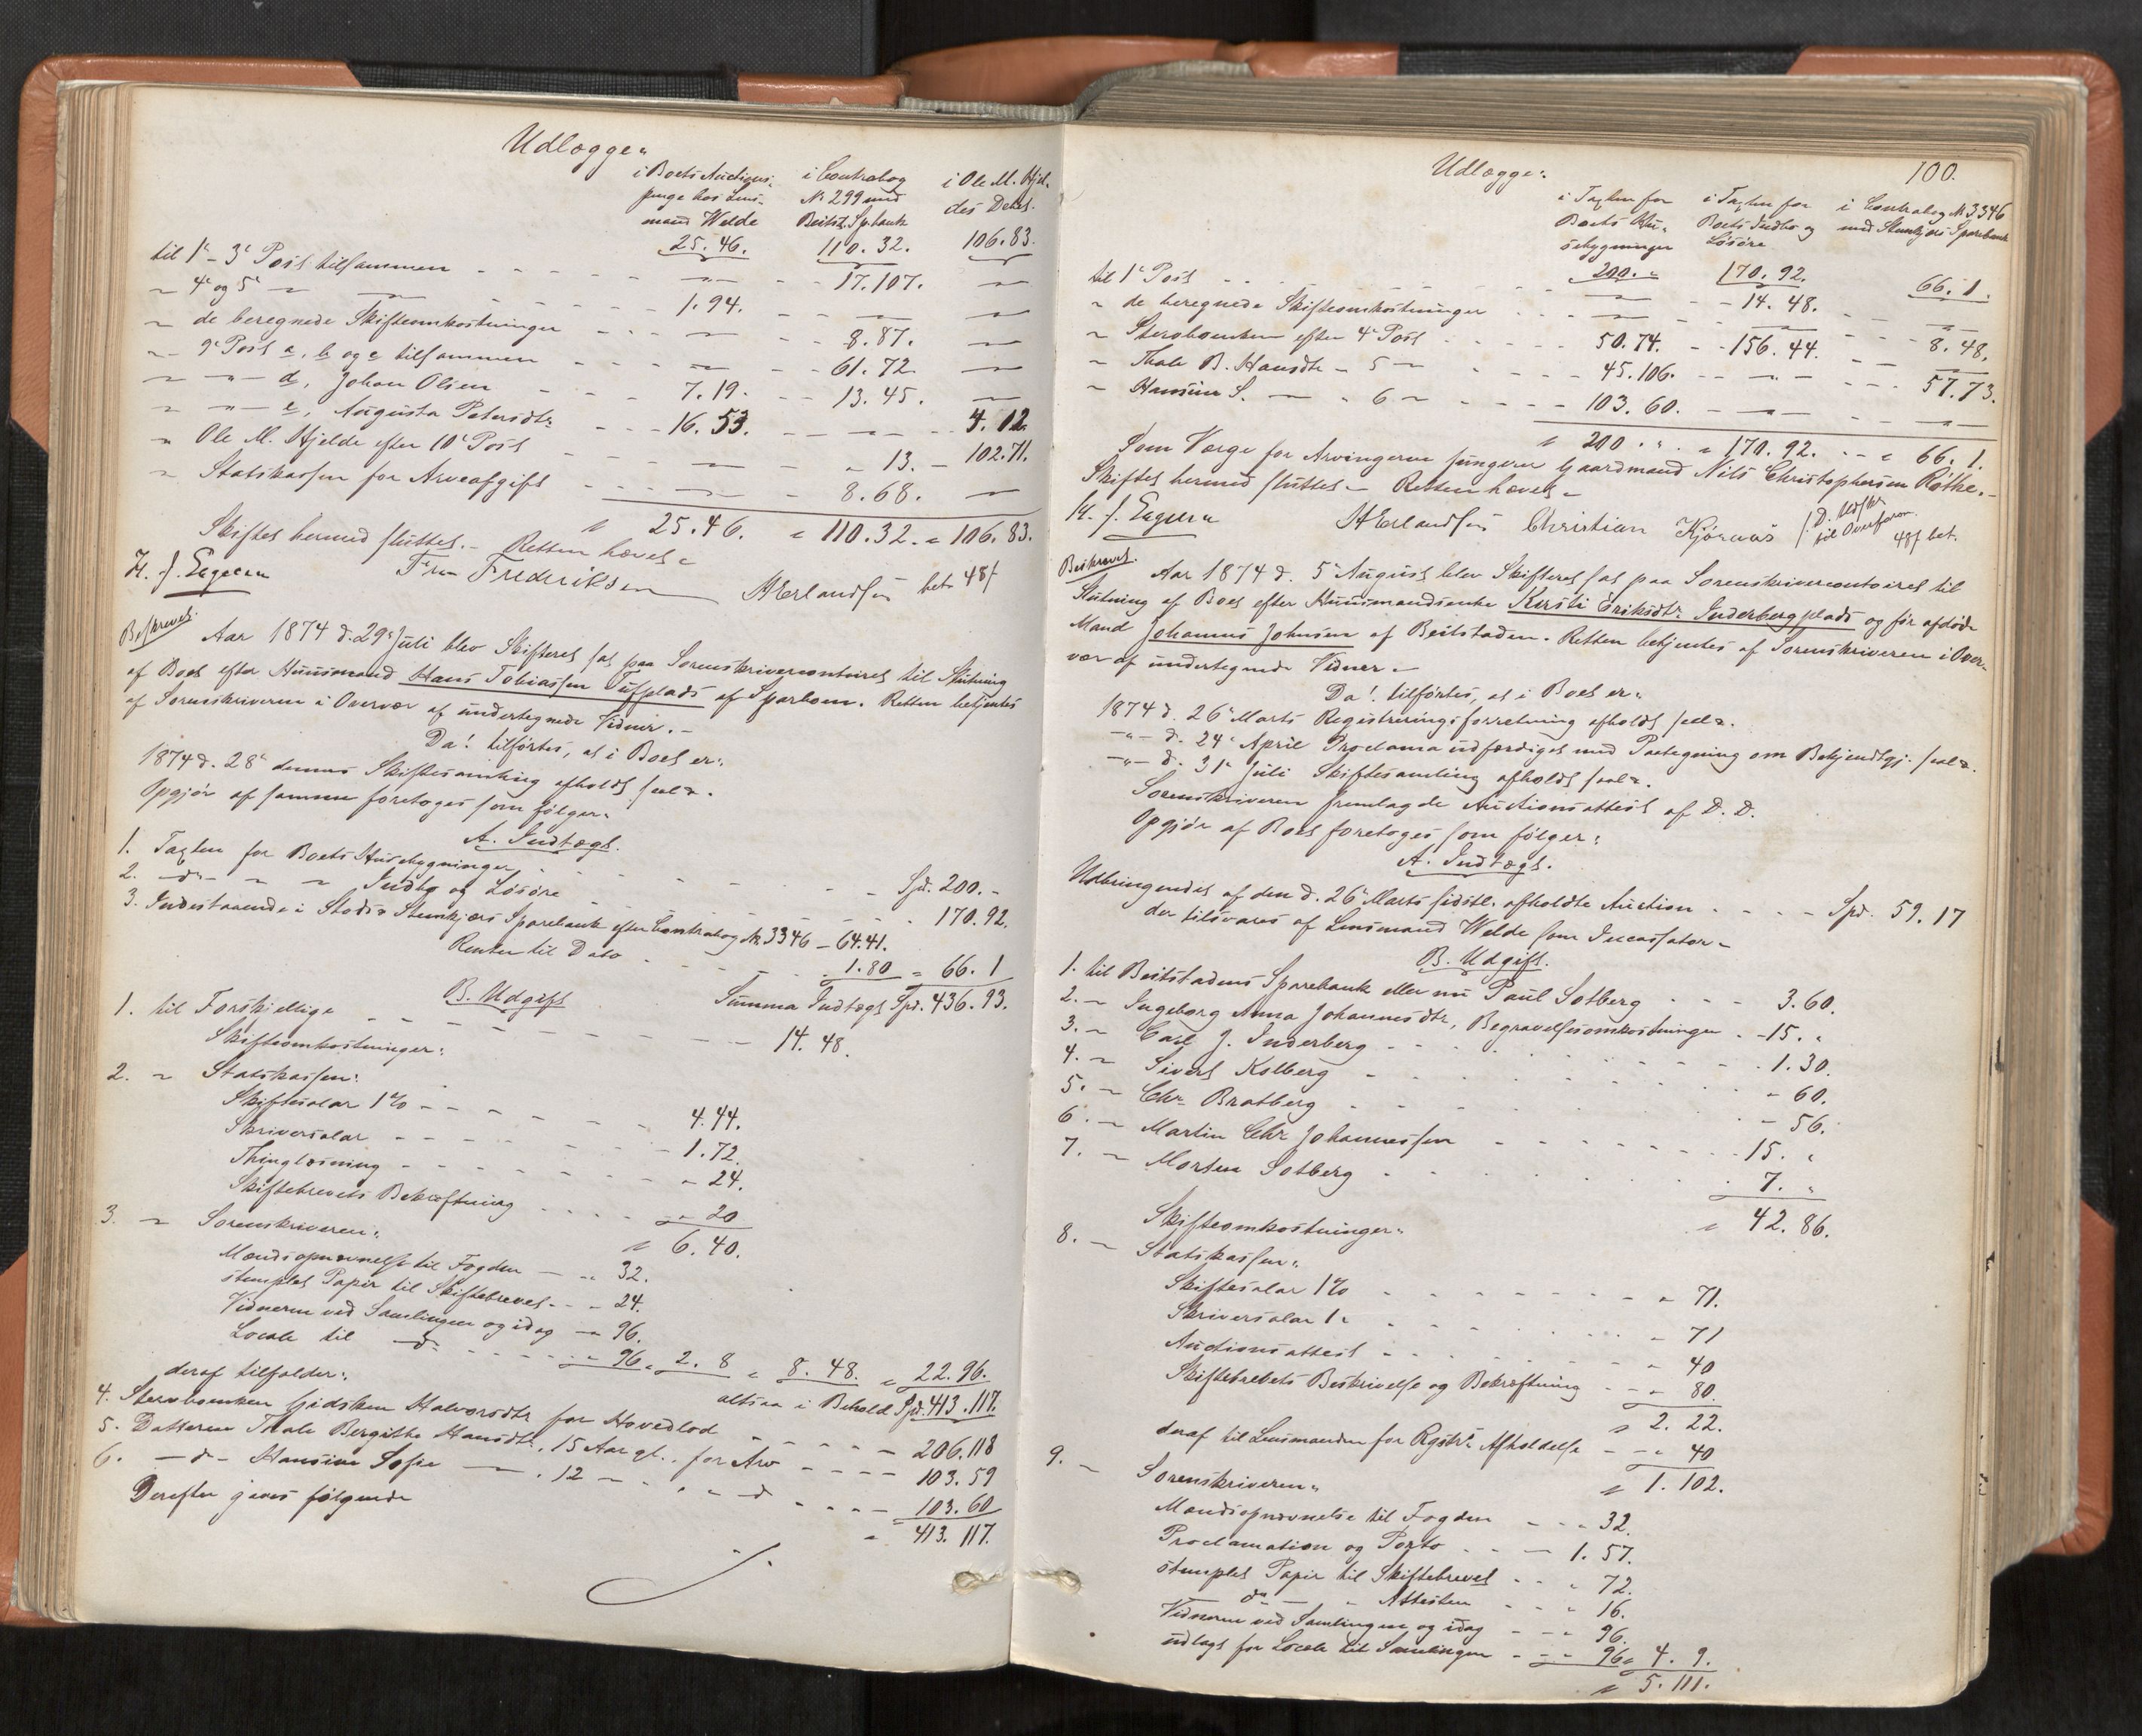 Udlægges
i Boets Auctions- i Contrabog i Ole M. Hjel-
penge hos Lens- No 299 med des Debet.
mand Welde Beitst. Sp.bank
25. 46. 110. 32. 106. 83.
til 1e - 3e Post tilsammen - - - - - " - - 17. 107. "
" 4e og 5e " - - - - - 1. 94. - - " "
" de beregnede Skifteomkostninger - - - " - - 8. 87. "
" 9e Post a, b og c tilsammen - - - - " - - 61. 72. "
" " - d, Johan Olsen - - - 7. 19. - - 13. 45. "
" " - e, Augusta Petersdtr - - - 16. 53. - - " - - 4. 12.
" Ole M. Hjelde efter 10e Post - - - - " - - " 13. - 102. 71.
" Statskassen for Arveafgift - - - " - - 8. 68. "
" 25. 46. " 110. 32. " 106. 83.
Skiftet hermed sluttet. - Retten hævet
H. J. Eggen Fr. Frederiksen A Erlandsen bet 48 f
Beskrevet
Aar 1874 d. 29e Juli blev Skifteret sat paa Sorenskrivercontoiret til Slutning
af Boet efter Huusmand Hans Tobiassen Tufplads af Sparboen. Retten betjentes
af Sorenskriveren i Overvær af undertegnede Vidner. -
Da! tilførtes, at i Boet er:
1874 d. 28e dennes Skiftesamling afholdt sal.
Opgjør af samme foretoges som følger:
A. Indtægt.
1. Taxten for Boets Husebygninger - - - - - - Spd. 200. -
2. - do - " " Indbo og Løsøre - - - - - 170. 92.
3. Indestaaende i Stods & Stenkjærs Sparebank efter Contrabog No 3346 - 64. 41.
Renter til Dato - - - - 1. 80 = 66. 1
Summa Indtægt Spd. 436. 93.
B. Udgift
1. til Forskjellige - - - - - - - - 14. 48.
Skifteomkostninger:
2. " Statskassen:
Skiftesalar 1% - - - - - 4. 44.
Skriversalar - - - - - - 1. 72.
Thinglæsning - - - - - - " 24.
Skiftebrevets Bekræftning - - - - " 20
" 6. 40.
3. " Sorenskriveren:
Mændsopnævnelse til Fogden - " 32.
stemplet Papir til Skiftebrevet - - " 24.
Vidnerne ved Samlingen og idag - " 96.
Locale til - do - - - - - " 96. " 2. 8 " 8. 48. " 22. 96.
altsaa i Behold Spd. 413. 117.
deraf tilfalder:
4. Stervboenken Gidsken Halvorsdtr for Hovedlod - - - - - 206. 118
5. Datteren Thale Bergitha Hansdtr, 15 Aar gl., for Arv - - - - 103. 59
6. - do - Hansine Sofie - , 12 " " " - do - - - - - 103. 60
" 413. 117.
Derefter gives følgende
100.
Udlægge:
i Taxten for i Taxten for i Contrabog No 3346
Boets Hu- Boets Indbo og med Stenkjærs Sparebank
sebygninger Løsøre
200. " 170. 92. 66. 1.
til 1e Post - - - - - - " - - 14. 48. - - "
" de beregnede Skifteomkostninger - - - " - - " - - - 8. 48.
" Stervboenken efter 4e Post - - - - - 50. 74. - - 156. 44. - - "
" Thale B. Hansdtr - 5 " - - - - 45. 106. - - " - - - 57. 73.
" Hansine S. " - " 6 " - - - - 103. 60. - " - - - "
" 200. " " 170. 92. - " 66. 1.
Som Værge for Arvingerne fungerer Gaardmand Nils Christophersen Røthe. -
Skiftet hermed sluttet - Retten hævet -
H. J. Eggen A Erlandsen Christian Kjønaas
til Overform
48 f bet.
Beskrevet.
Aar 1874 d. 5e August blev Skifteret sat paa Sorenskrivercontoiret til
Slutning af Boet efter Huusmandsenke Kirsti Eriksdtr Inderbergplads og før afdøde
Mand Johannes Johnsen af Beitstaden. Retten betjentes af Sorenskriveren i Over-
vær af undertegnede Vidner. -
Da! tilførtes, at i Boet er:
1874 d. 26e Marts Registreringsforretning afholdt sal.
- " - d. 24e April Proclama udfærdiget med Paategning om Bekjendtgj. sal.
- " - d. 31e Juli Skiftesamling afholdt sal.
Sorenskriveren fremlagde Auctionsattest af D. D.
Opgjør af Boet foretoges som følger:
A. Indtægt.
Udbringendet af den d. 26e Marts sidstl. afholdte Auction - - - - Spd. 59. 17
der tilsvares af Lensmand Welde som Incassator -
B. Udgift.
1. til Beitstadens Sparebank eller nu Paul Solberg - - - 3. 60.
2. " Ingeborg Anna Johannesdtr, Begravelsesomkostninger - - 15. "
3. " Carl J. Inderberg - - - - - - - 1. 30.
4. " Sivert Kolberg - - - - - - - " 60.
5. " Chr. Bratberg - - - - - - " 56.
6. " Martin Chr Johannessen - - - - - - 15. "
7. " Morten Solberg - - - - - - 7. "
" 42. 86.
Skifteomkostninger:
8. " Statskassen:
Skiftesalar 1% - - - - - - - " 71.
Skriversalar 1 " - - - - - - - " 71
Auctionsattest - - - - - - - " 40
Skiftebrevets Beskrivelse og Bekræftning - - " 80.
" 2. 22.
deraf til Lensmanden for Rgstrs Afholdelse - - " 40
" 1. 102.
9. " Sorenskriveren:
Mændsopnævnelse til Fogden - - - " 32.
Proclamation og Porto - - - 1. 57.
stemplet Papir til Skiftebrevet - - " 72.
do - " Attesten - - - " 16.
Vidnerne ved Samlingen og idag - - " 96.
udlagt for Locale til Samlingen - - - 96 " 4. 9.
" 5. 111.